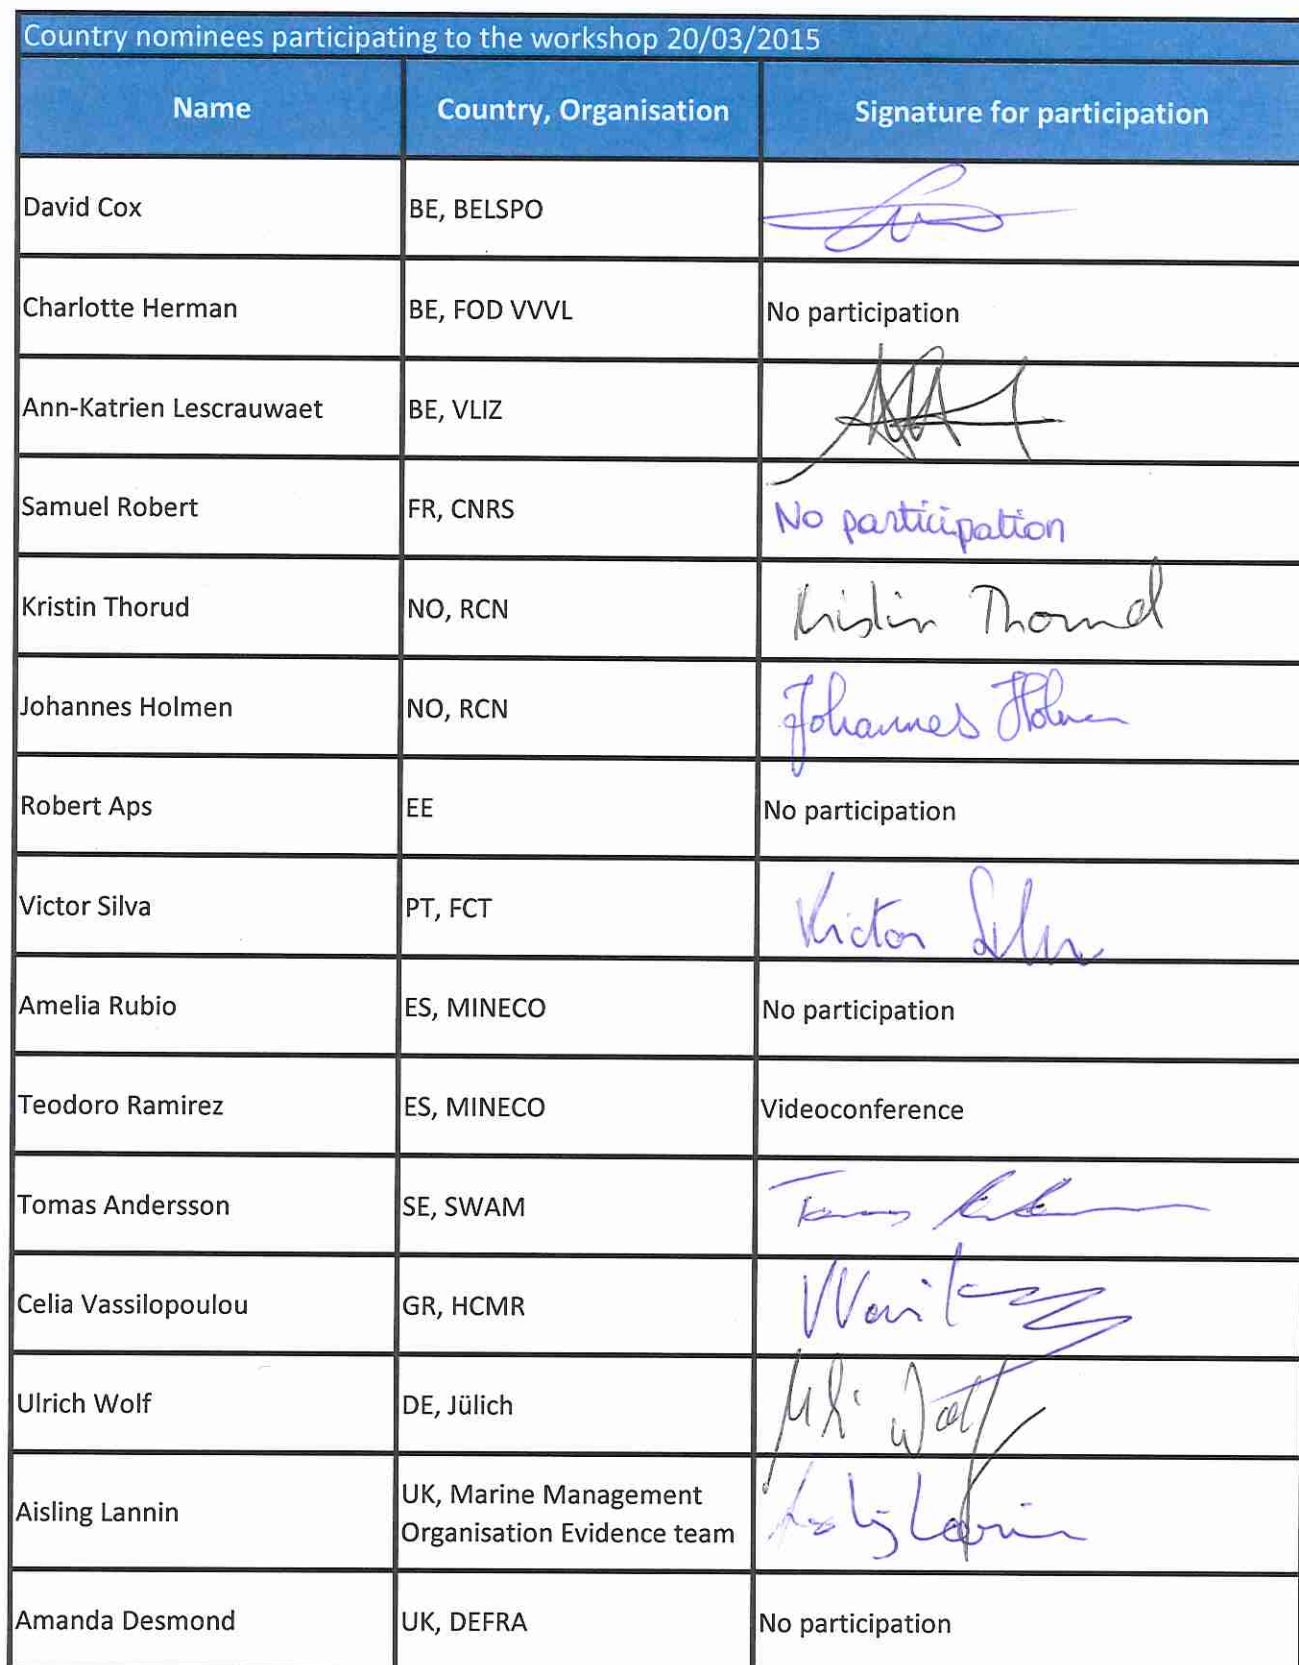 Country nominees participating to the workshop 20/03/2015
Name Country, Organisation Signature for participation
David Cox BE, BELSPO
Charlotte Herman BE, FOD VVVL No participation
Ann-Katrien Lescrauwaet BE, VLIZ
Samuel Robert FR, CNRS No participation
Kristin Thorud NO, RCN Kristin Thorud
Johannes Holmen NO, RCN Johannes Holmen
Robert Aps EE No participation
Victor Silva PT, FCT Victor Silva
Amelia Rubio ES, MINECO No participation
Teodoro Ramirez ES, MINECO Videoconference
Tomas Andersson SE, SWAM
Celia Vassilopoulou GR, HCMR
Ulrich Wolf DE, Jülich
Aisling Lannin UK, Marine Management
Organisation Evidence team
Amanda Desmond UK, DEFRA No participation